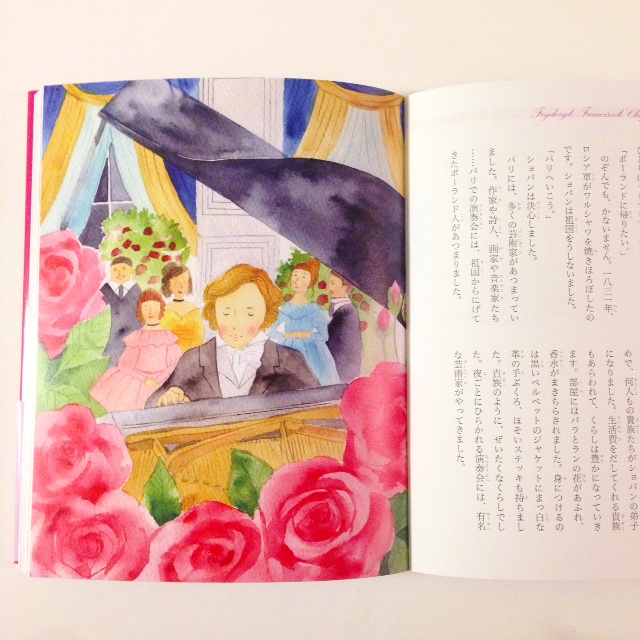 Fryderyk Franciszek Ch
「ポーランドに帰りたい。」
のぞんでも、かないません。一八三一年、
ロシア軍がワルシャワを焼きほろぼしたの
です。ショパンは祖国をうしないました。
「パリへいこう。」
ショパンは決心しました。
パリには、多くの芸術家があつまってい
ました。作家や詩人、画家や音楽家たち
……パリでの演奏会には、祖国からにげて
きたポーランド人があつまりました。
めで、何人もの貴族たちがショパンの弟子
になりました。生活費をだしてくれる貴族
もあらわれて、くらしは豊かになっていき
ます。部屋にはバラとランの花があふれ、
香水がまきちらされました。身につけるの
は黒いベルベットのジャケットにまっ白な
革の手ぶくろ、ほそいステッキも持ちまし
た。貴族のように、ぜいたくなくらしでし
た。夜ごとにひらかれる演奏会には、有名
な芸術家がやってきました。